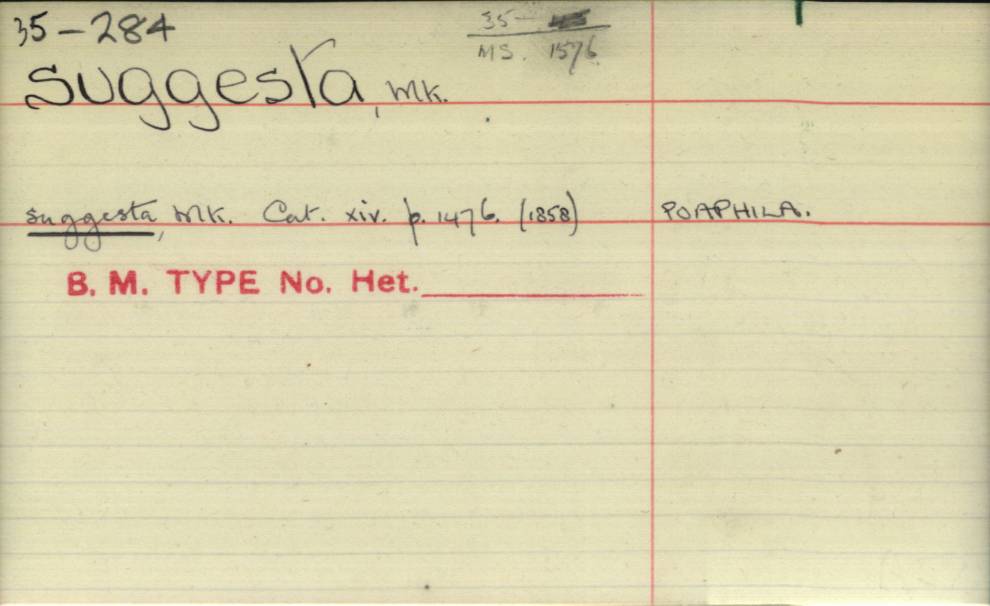 35-284
35-
MS. 1576
suggesta, Wlk.
suggesta, Wlk. Cat. xiv. p. 1476. (1858)
POAPHILA.
B. M. TYPE No. Het.